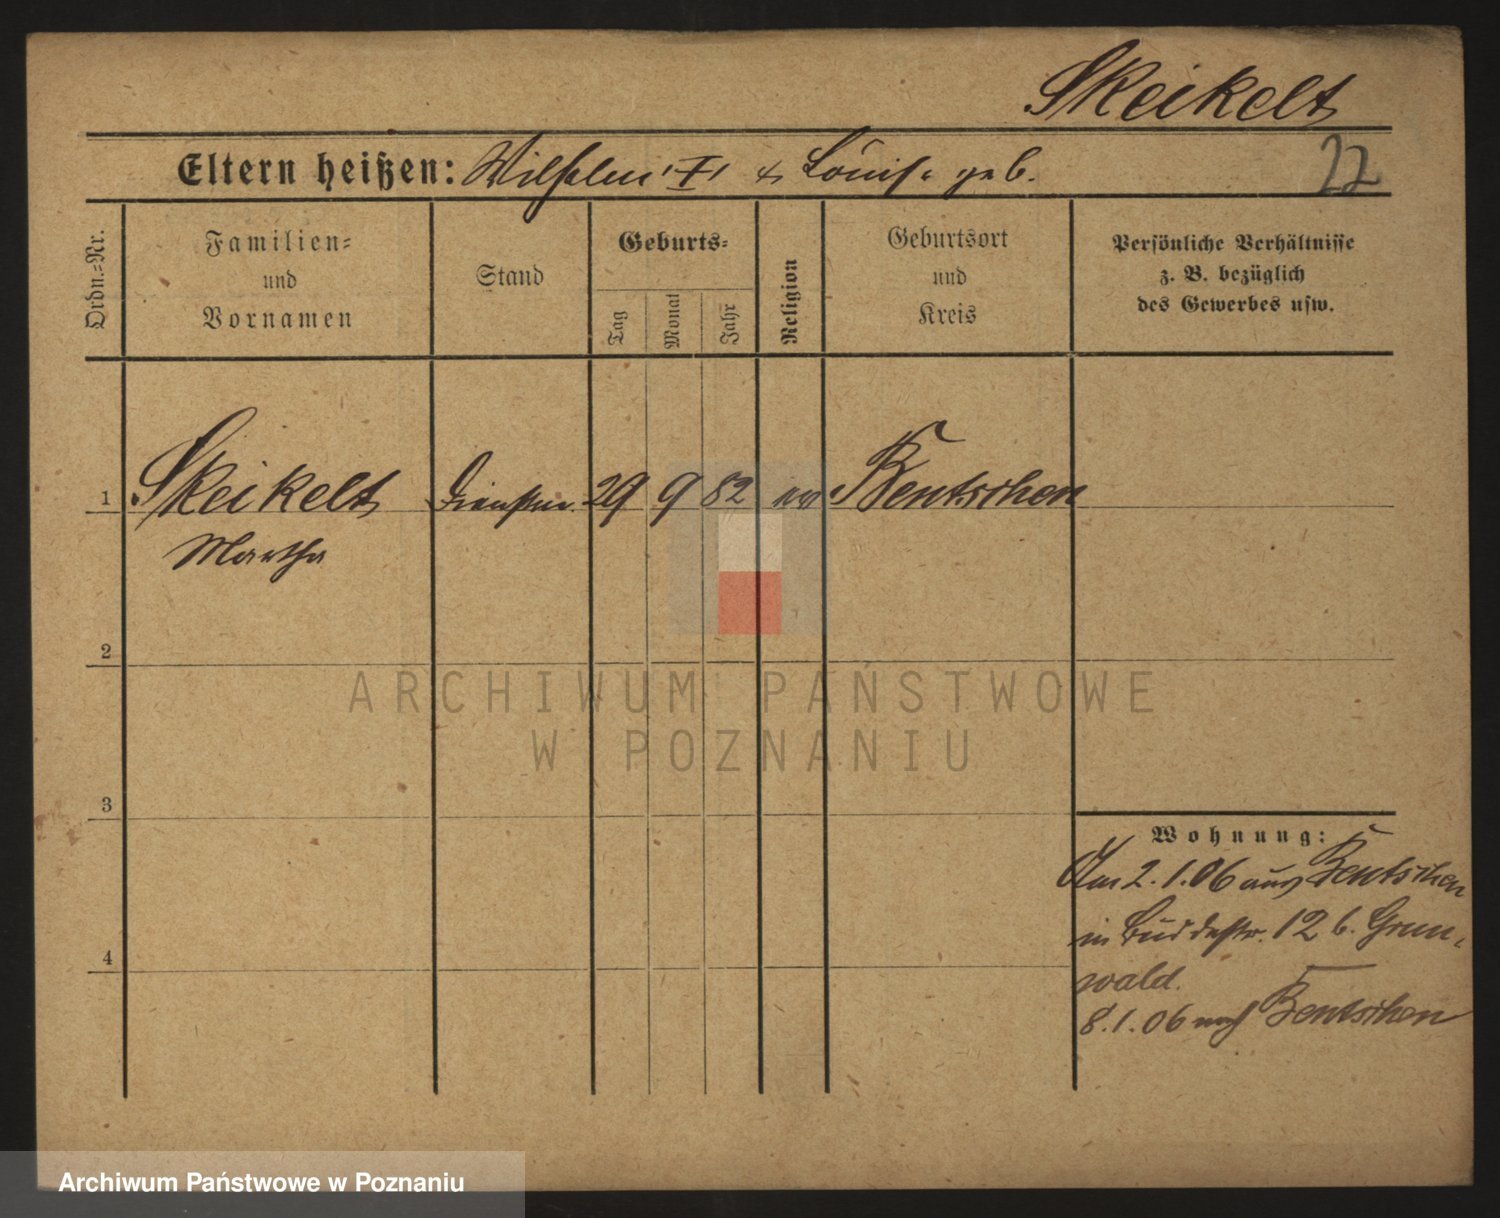 Skeikelt
Eltern heißen: Wilhelm I & Louise geb.
22
Ordn.-Nr.
Familien-
und
Vornamen
Stand
Geburts-
Tag
Monat
Jahr
Religion
Geburtsort
und
Kreis
Persönliche Verhältnisse
z. B. bezüglich
des Gewerbes usw.
1 Skeikelt Dienstm. 29 9 82 ev Bentschen
Martha
2
ARCHIWUM PAŃSTWOWE
W POZNANIU
3
Wohnung:
Am 2.1.06 aus Bentschen
in Buddestr. 12 b. Grun-
wald.
4
8.1.06 nach Bentschen
Archiwum Państwowe w Poznaniu